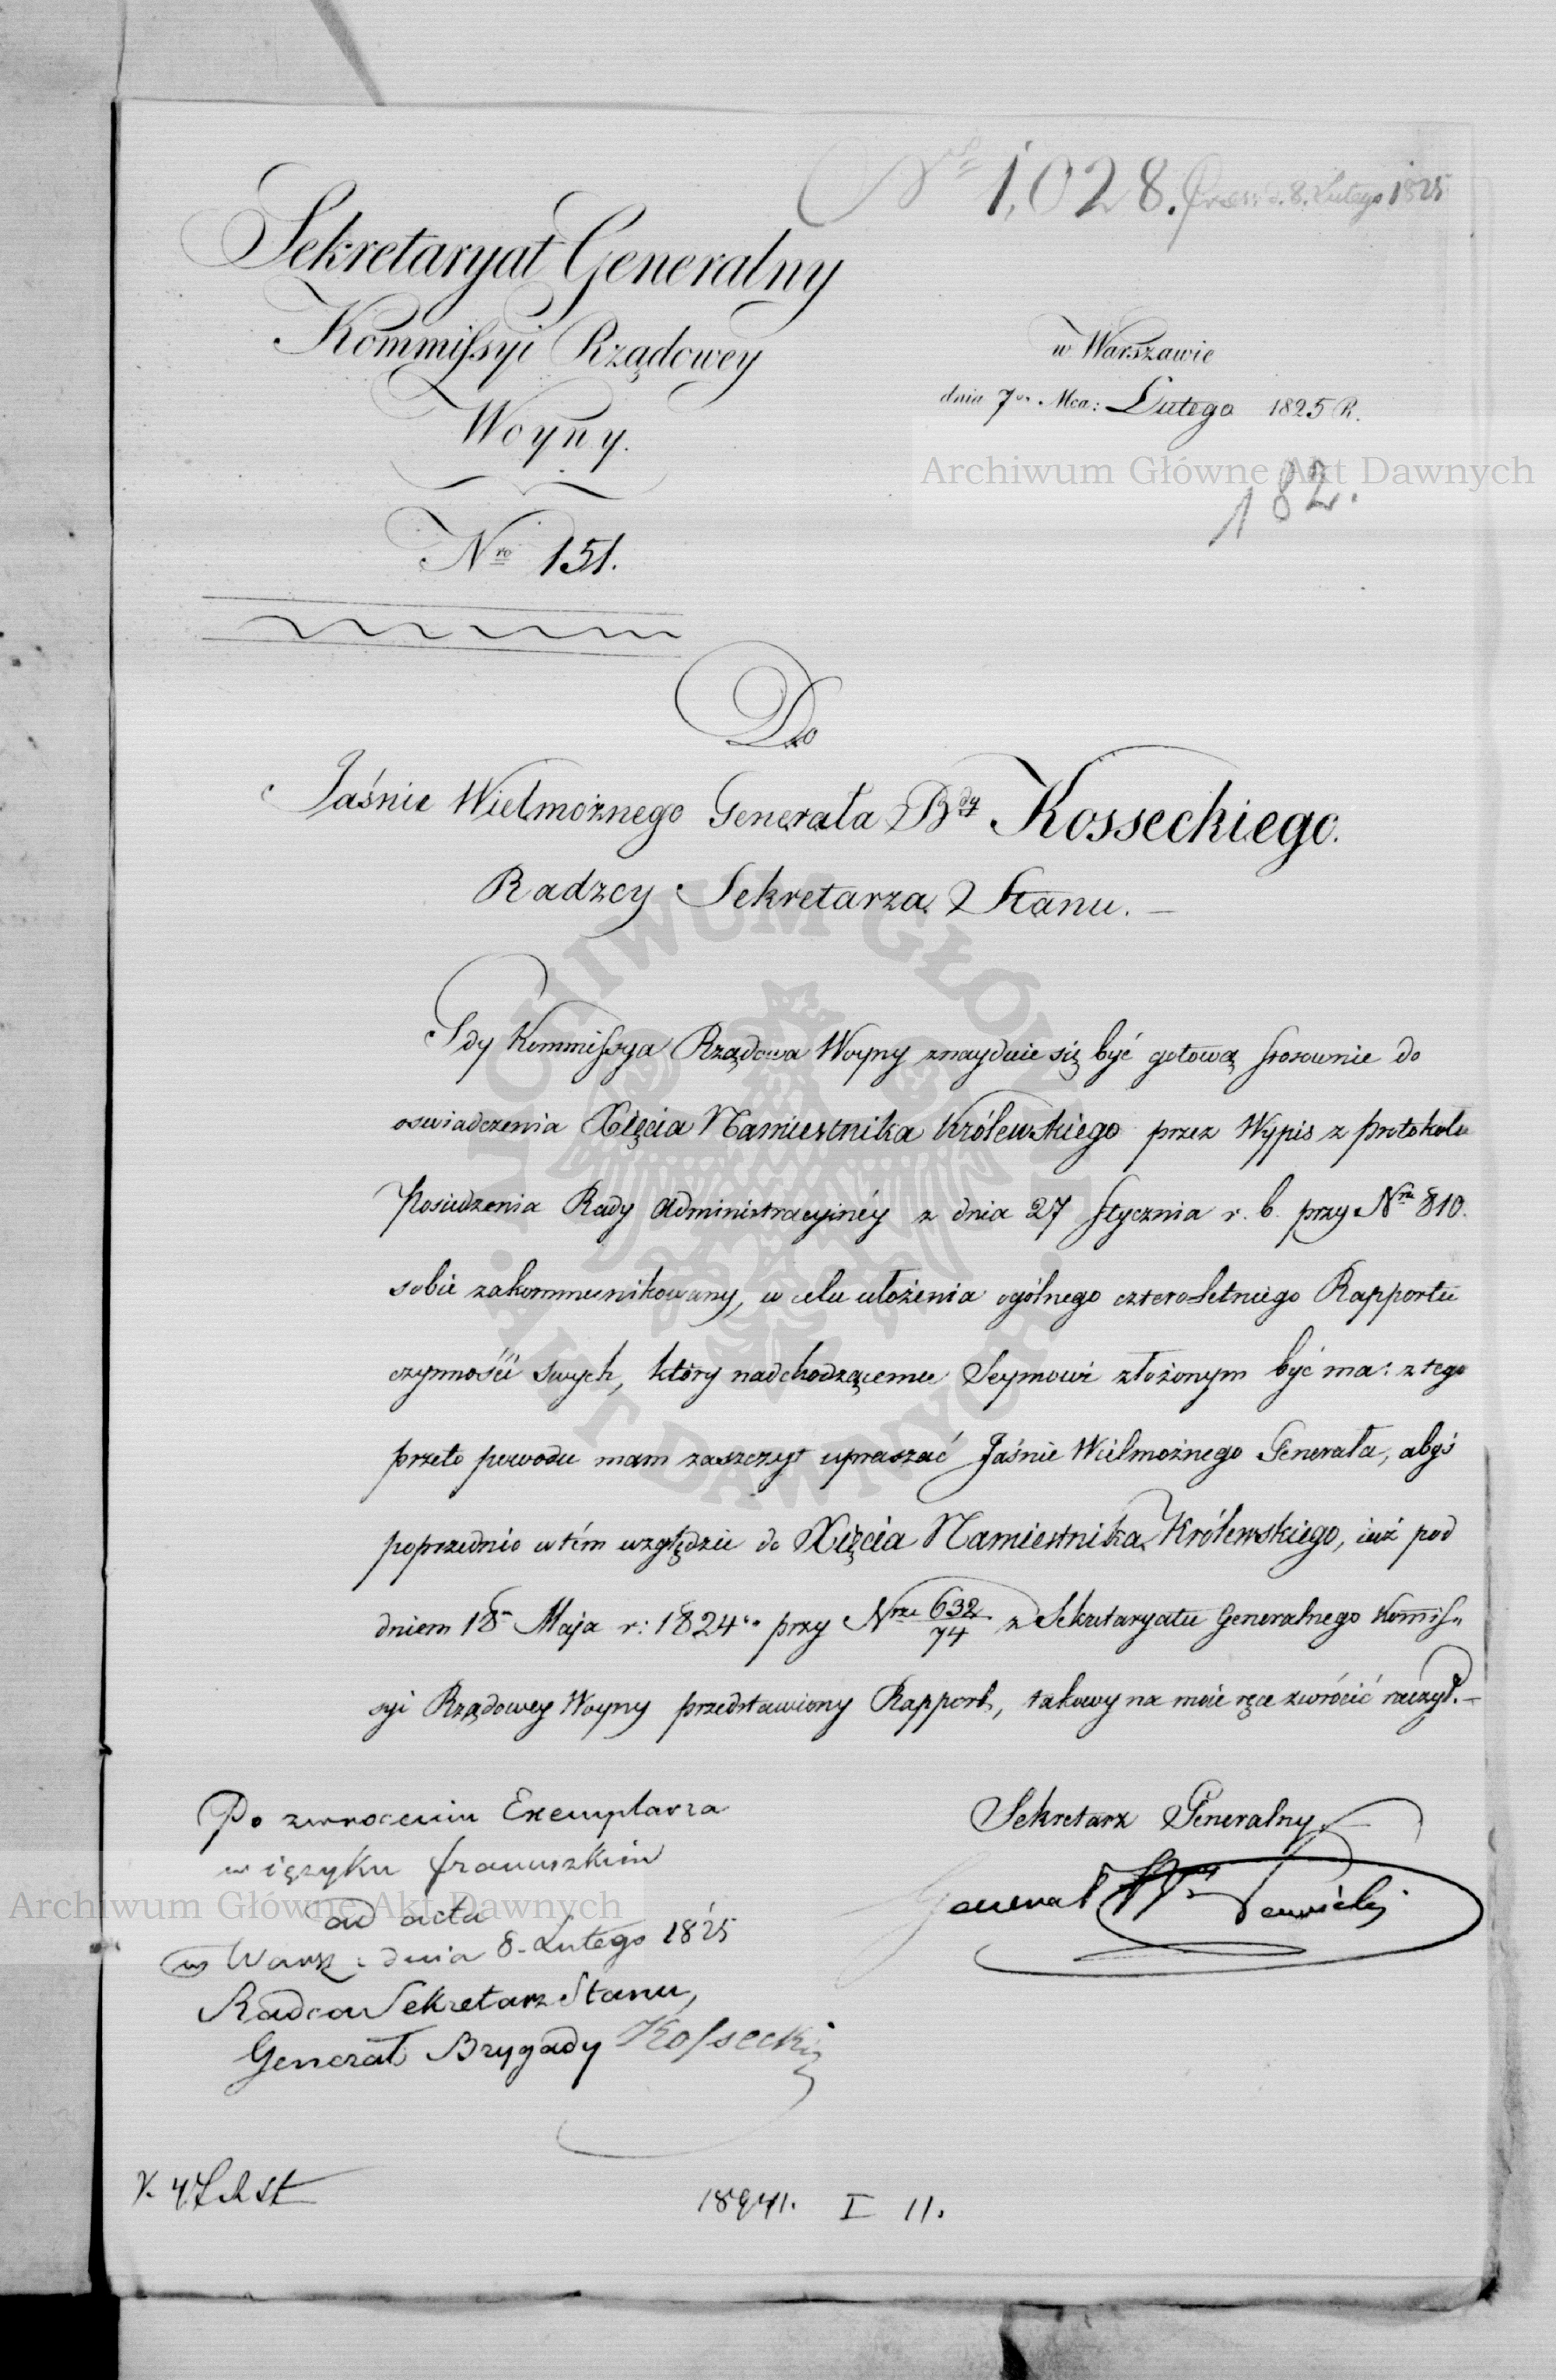 Nº 1,028. Pres: d. 8. Lutego 1825
Sekretaryat Generalny
Kommissyi Rządowey
Woyny.
Nro 151.
w Warszawie
dnia 7go Mca: Lutego 1825 R.
Archiwum Główne Akt Dawnych
182.
Do
Jaśnie Wielmożnego Generała Bdy Kosseckiego.
Radzcy Sekretarza Stanu. —
ARCHIWUM GŁÓWNE AKT DAWNYCH
Gdy Kommissya Rządowa Woyny znayduie się być gotową stosownie do
oswiadczenia Xięcia Namiestnika Królewskiego przez Wypis z protokołu
Posiedzenia Rady Administracyinéy z dnia 27 Stycznia r. b. przy Nrze 810.
sobie zakommunikowany, w celu ułożenia ogólnego czteroletniego Rapportu
czynności swych, który nadchodzącemu Seymowi złożonym być ma: z tego
przeto powodu mam zaszczyt upraszać Jaśnie Wielmożnego Generała, abyś
poprzednio w tém względzie do Xięcia Namiestnika Królewskiego, iuż pod
dniem 18m Maja r: 1824go przy Nrze 632/74 z Sekretaryatu Generalnego Kommis„
syi Rządowey Woyny przedstawiony Rapport, takowy na moie ręce zwrócić raczył. —
Sekretarz Generalny
Generał
Po zwroceniu Exemplarza
w ięzyku francuzkim
ad acta
Archiwum Główne Akt Dawnych
w Warsz: dnia 8. Lutego 1825
Radca Sekretarz Stanu,
Generał Brygady Kossecki
I 11.